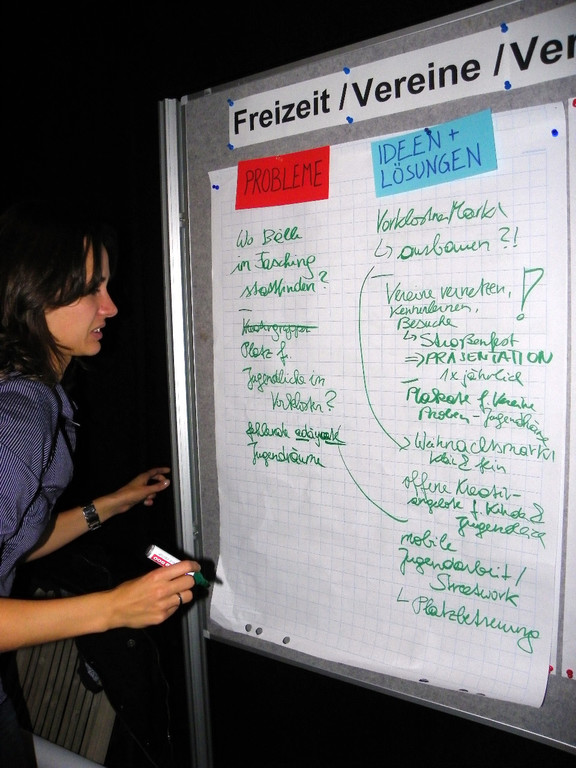 Freizeit / Vereine / Ver
PROBLEME
IDEEN +
LÖSUNGEN
Wo Bälle
im Fasching
stattfinden?
Platz f.
Jugendliche im
Vorkloster?
fehlende adäquate
Jugendräume
Vorkloster Markt
↳ ausbauen ?!
Vereine vernetzen,
kennenlernen,
Besuche
↳ Straßenfest
⇒ PRÄSENTATION
1x jährlich
Plakate f. Vereine
Proben - Jugendhäuser
Weihnachtsmarkt
klein & fein
offene Kreativ-
angebote f. Kinder &
Jugendliche
mobile
Jugendarbeit /
Streetwork
Platzbetreuung